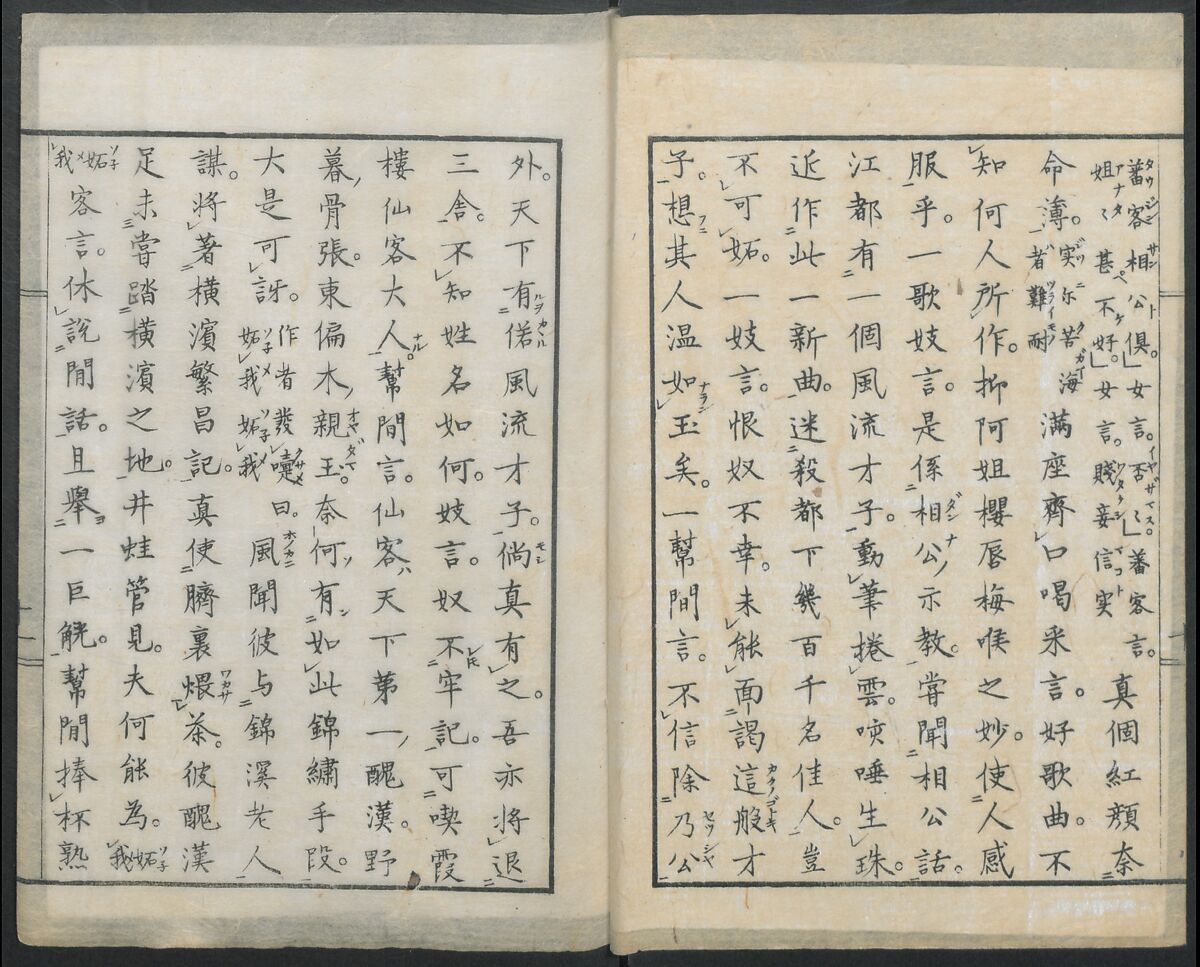 蕃客相公倶。女言。否〻蕃客言。真個紅顔奈
姐〻甚不好。女言。賤妾信実
命薄。実尓苦海満座齊口喝采言。好歌曲。不
者難耐
知何人所作。抑阿姐櫻唇梅喉之妙。使人感
服乎。一歌妓言。是係相公示教。嘗聞相公話。
江都有一個風流才子。動筆捲雲。咳唾生珠。
近作此一新曲。迷殺都下幾百千名佳人。豈
不可妬。一妓言。恨奴不幸。未能面謁這般才
子。想其人温如玉矣。一幇間言。不信除乃公
外。天下有偌風流才子。倘真有之。吾亦将退
三舎。不知姓名如何。妓言。奴不牢記。可喫霞
樓仙客大人。幇間言。仙客天下第一醜漢。野
暮骨張。東偏木親玉。奈何有如此錦繡手段。
大是可訝。作者発嚔曰。風聞彼与錦渓老人
妬我妬我
謀。将著横濱繁昌記。真使臍裏煨茶。彼醜漢
足未嘗踏横濱之地。井蛙管見。夫何能為。妬我
妬我客言。休説閒話。且舉一巨觥。幇間捧杯熟